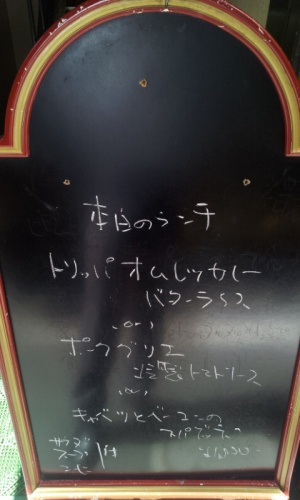 本日のランチ
トリッパ オムレツカレー
バターライス
(or)
ポークグリエ
トマトソース
(or)
キャベツとベーコンの
スパゲッティ
サラダ
スープ 付
コーヒー